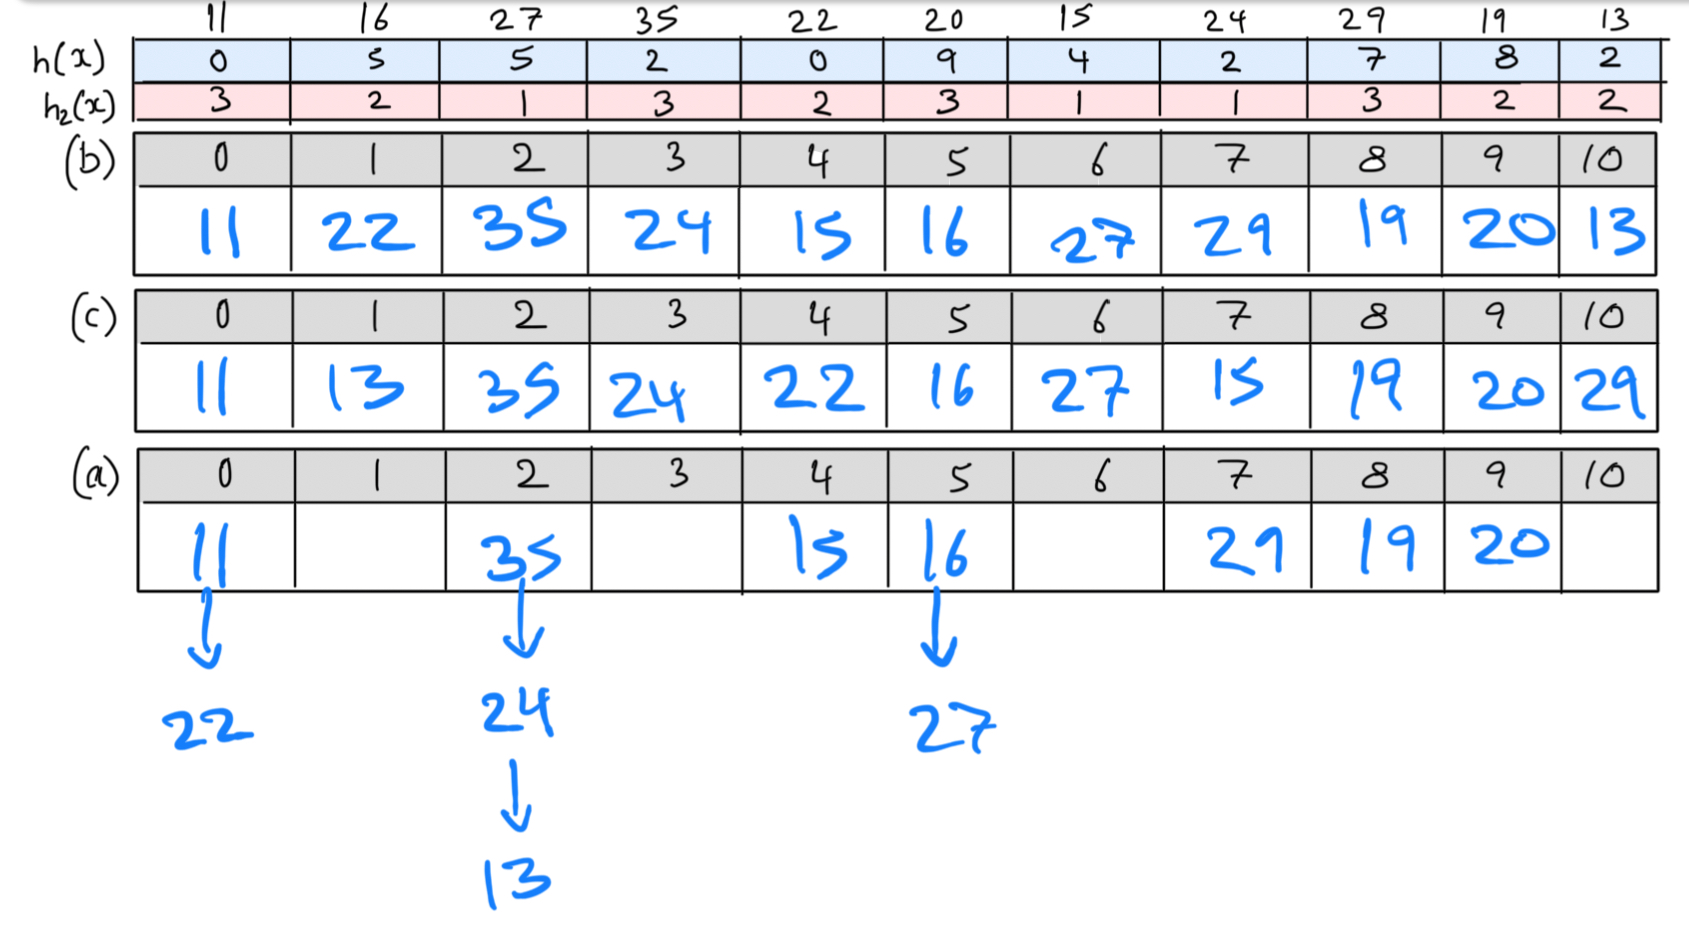 11 16 27 35 22 20 15 24 29 19 13
h(x) 0 5 5 2 0 9 4 2 7 8 2
h₂(x) 3 2 1 3 2 3 1 1 3 2 2
(b) 0 1 2 3 4 5 6 7 8 9 10
11 22 35 24 15 16 27 29 19 20 13
(c) 0 1 2 3 4 5 6 7 8 9 10
11 13 35 24 22 16 27 15 19 20 29
(a) 0 1 2 3 4 5 6 7 8 9 10
11 35 15 16 29 19 20
22 24 27
13